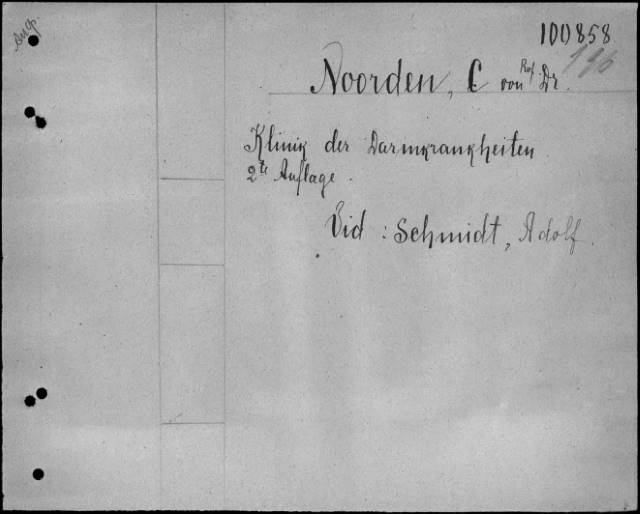 100858
196
Noorden, C von Prof. Dr.
Klinik der Darmkrankheiten
2te Auflage.
Vid : Schmidt, Adolf.